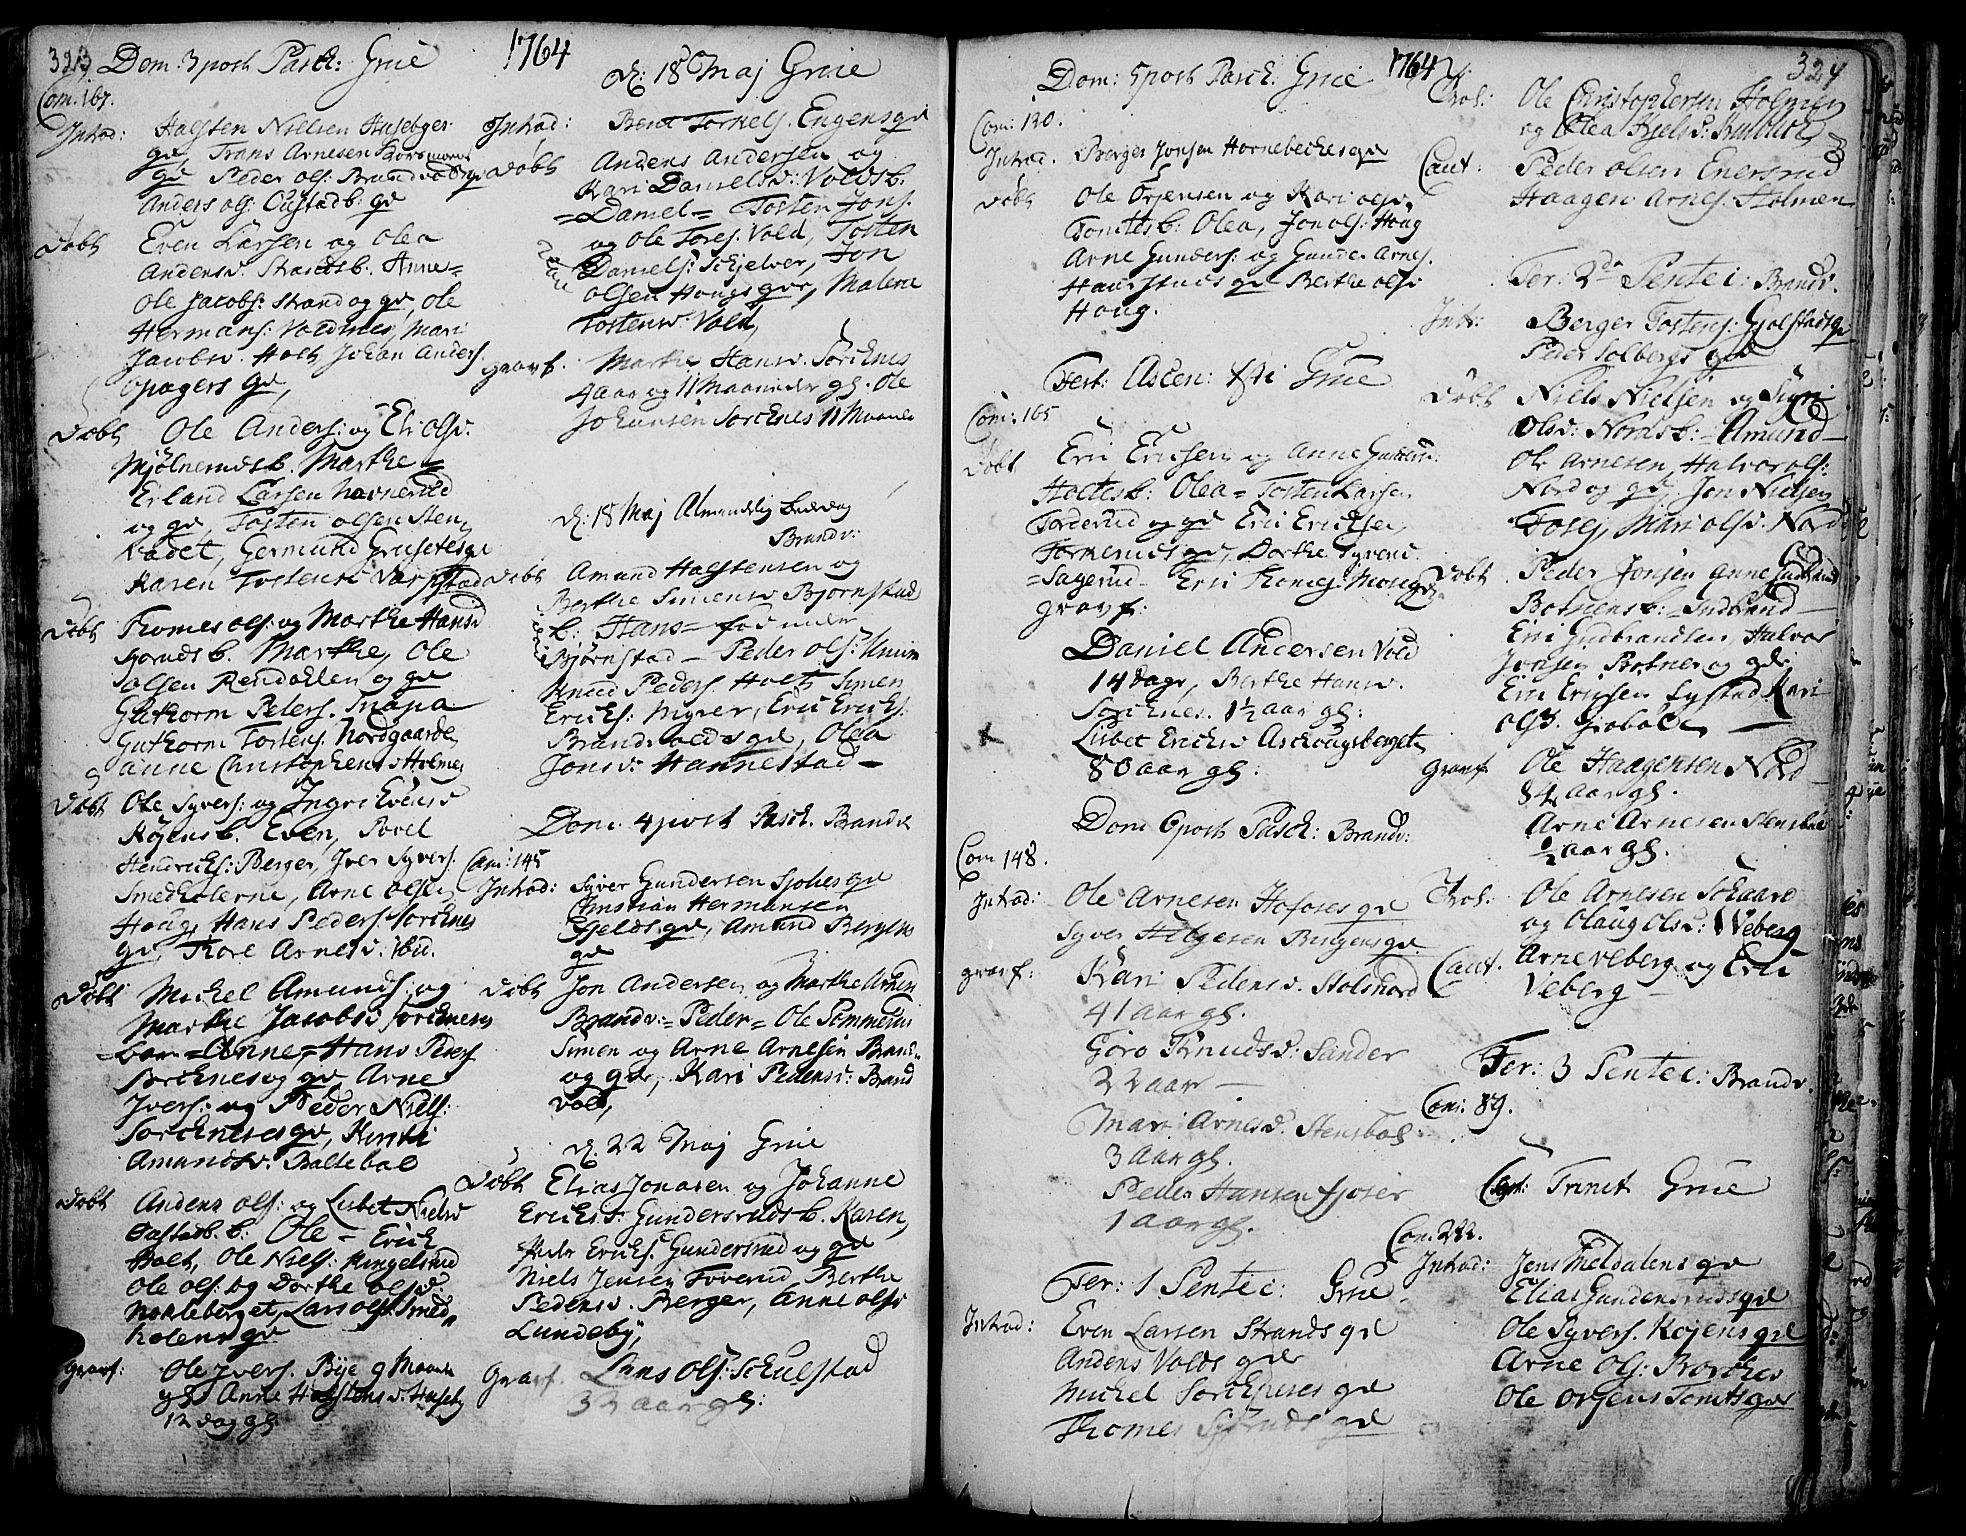 323
Dom: 3 post Pasch: Grue
1764
Com: 167.
Introd: Halsten Nielsen Husebyes
ge, Frans Arnesen
ge Peder Ols: Brandvolds ge
Anders Ols: Oustadb: ge
Döbt Even Larsen og Olea
Andersd. Strandsb. Anne=
Ole Jacobs: Strand og ge, Ole
Hermans: Voldnes, Mari
Jacobsd. Holt Johan Anders
opagers ge,
Döbt Ole Anders: og Eli Olsd.
Mjölnerudsb. Marthe=
Erland Larsen
og ge, Tosten Olsen Sten
vadet, Germund Grusetes ge
Karen Tostensd
Döbt Thomes Ols: og Marthe Hansd
b. Marthe, Ole
Olsen Rendahlen og ge
Guthorm Peders.
Guthorm Tostens. Nordgaarde,
Anne Christophersd Holmen
Döbt Ole Syvers: og Ingri Evensd
Köyensb. Even, Povel
Hendrichs: Berger, Iver Syvers.
Smedholerne, Arne Olsen
Houg, Hans Peders: Sorchnes
ge, Thore Arnesd. ibid.
Döbt Michel Amunds: og
Marthe Jacobsd Sorchnes
barn = Anne = Hans Peders
Sorchnes og ge Arne
Ivers: og Peder Niels:
Sorchneses ge, Kirsti
Amundsd. Baltebøl
Döbt Anders Ols: og Lisbet Nielsd
Oustadb. b: Ole = Erich
Holt, Ole Niels: Ringelsrud
Ole Ols: og Dorthe Olsd
Nokleberget, Lars Ols: Smed
holens ge
Gravf: Ole Ivers. Bye 9 Maan
gl: Anne Halstensd: Huseby
12 dag gl.
d: 18 Maj Grue
Introd: Bent Torkels. Engens ge
Döbt Anders Andersen og
Kari Danielsd: Voldsb.
=Daniel= Tosten Jons.
og Ole Tores. Vold, Tosten
Daniels: Schjelver, Jon
Olsen Hougs ge, Malene
Tostensd. Vold,
Gravf. Marthe Hansd. Sorchnes
4 aar og 11 Maaneder gl. Ole
Johansen Sorchnes 11 Maaned
d: 18 Maj Almindelig Bededag
Brandv:
Döbt Amund Halstensen og
Berthe Simensd Bjornstad
b: Hans=
Bjørnstad - Peder Ols:
Knud Peders. Holt Simen
Erichs: Myrer, Erich Erichs.
Brandvolds ge, Olea
Jonsd: Hannestad -
Dom. 4 post Pasch. Brandv
Com: 145
Introd: Syver Gundersen Sjolies ge
Christian Hermansen
Fjelds ge, Amund Bergers
ge
Döbt Jon Andersen og Marthe Arnesd
Brandv: = Peder = Ole
Simen og Arne Arnesen Brandv.
og ge, Kari Pedersd: Brand
vold,
d. 22 Maj Grue
Döbt Elias Jonasen og Johanne
Erichsd: Gundersrudsb. Karen,
Peder Erichs: Gundersrud og ge
Niels Jensen Foverud, Berthe
Pedersd. Berger, Anne Olsd
Lundeby,
Gravf. Lars Ols: Schulstad
32 aar gl:
Dom: 5 post Pasch: Grue
1764
324
Com: 130.
Introd. Berger Jonsen Hornebeches ge
Döbt Ole Örjensen og Kari Olsd.
Tomtesb: Olea, Jon Ols: Houg
Arne Gunders: og Gunder Arnes.
ge Berthe Olsd
Houg.
Fest: Ascen: Xsti Grue
Com: 165
Döbt Erich Erichsen og Anne
Holtesb: Olea = Tosten Larsen
Torderud og ge Erich Erichsen,
ge, Dorthe Syversd.
=Sagerud - Erich Thomes:
Gravf:
Daniel Andersen Vold
14 dage, Berthe Hansd.
Sorchnes. 1½ aar gl:
Lisbet Erichsd Aschougsberget
80 aar gl:
Dom 6 post Pasch: Brandv:
Com 148.
Introd: Ole Arnesen Hofoses ge
Syver Helgesen Bringens ge
Gravf: Kari Pedersd. Stolsnord
41 aar gl.
Goro Knudsd: Sander
22 aar -
Mari Arnesd. Stensbøl
3 aar gl.
Peder Hansen Fjoser
1 aar gl.
Fer: 1 Pentec: Grue
Introd: Even Larsen Strands ge
Anders Volds ge
Michel Sorchneses ge
Thomes ge
Trol: Ole Christophersen Holmen
og Olea Kjelsd:
Caut: Peder Olsen Enersrud
Haagen Arnes. Holmen
Fer: 2da Pentec: Brandv.
Intr: Berger Tostens: Gjolstads ge
Peder Solbergs ge
Döbt Niels Nielsen og Sigri
Olsd: Nordsb: - Amund -
Ole Arnesen, Halvor Ols:
Nord og ge, Jon Nielsen
Mari Olsd. Nord
Döbt Peder Jonsen Anne Gudbrand
Botnersb: - Gudbrand -
Erich Gudbrandsen, Halvor
Jonsen Botner og ge
Erich Erichsen Lystad Kari
Olsd.
Gravf Ole Haagensen Nord -
84 aar gl.
Arne Arnesen Stensbøl
½ aar gl.
Trol. Ole Arnesen Schaard
og Olaug Olsd: Weberg
Caut. Arne Veberg og Erich
Veberg -
Fer: 3 Pentec: Brandv.
Com: 89.
Fest: Trinit Grue
Com. 222.
Introd: Jens Meldalens ge
Elias Gundersruds ge
Ole Syvers. Köyens ge
Arne Ols:
Ole Orjens Tomts ge